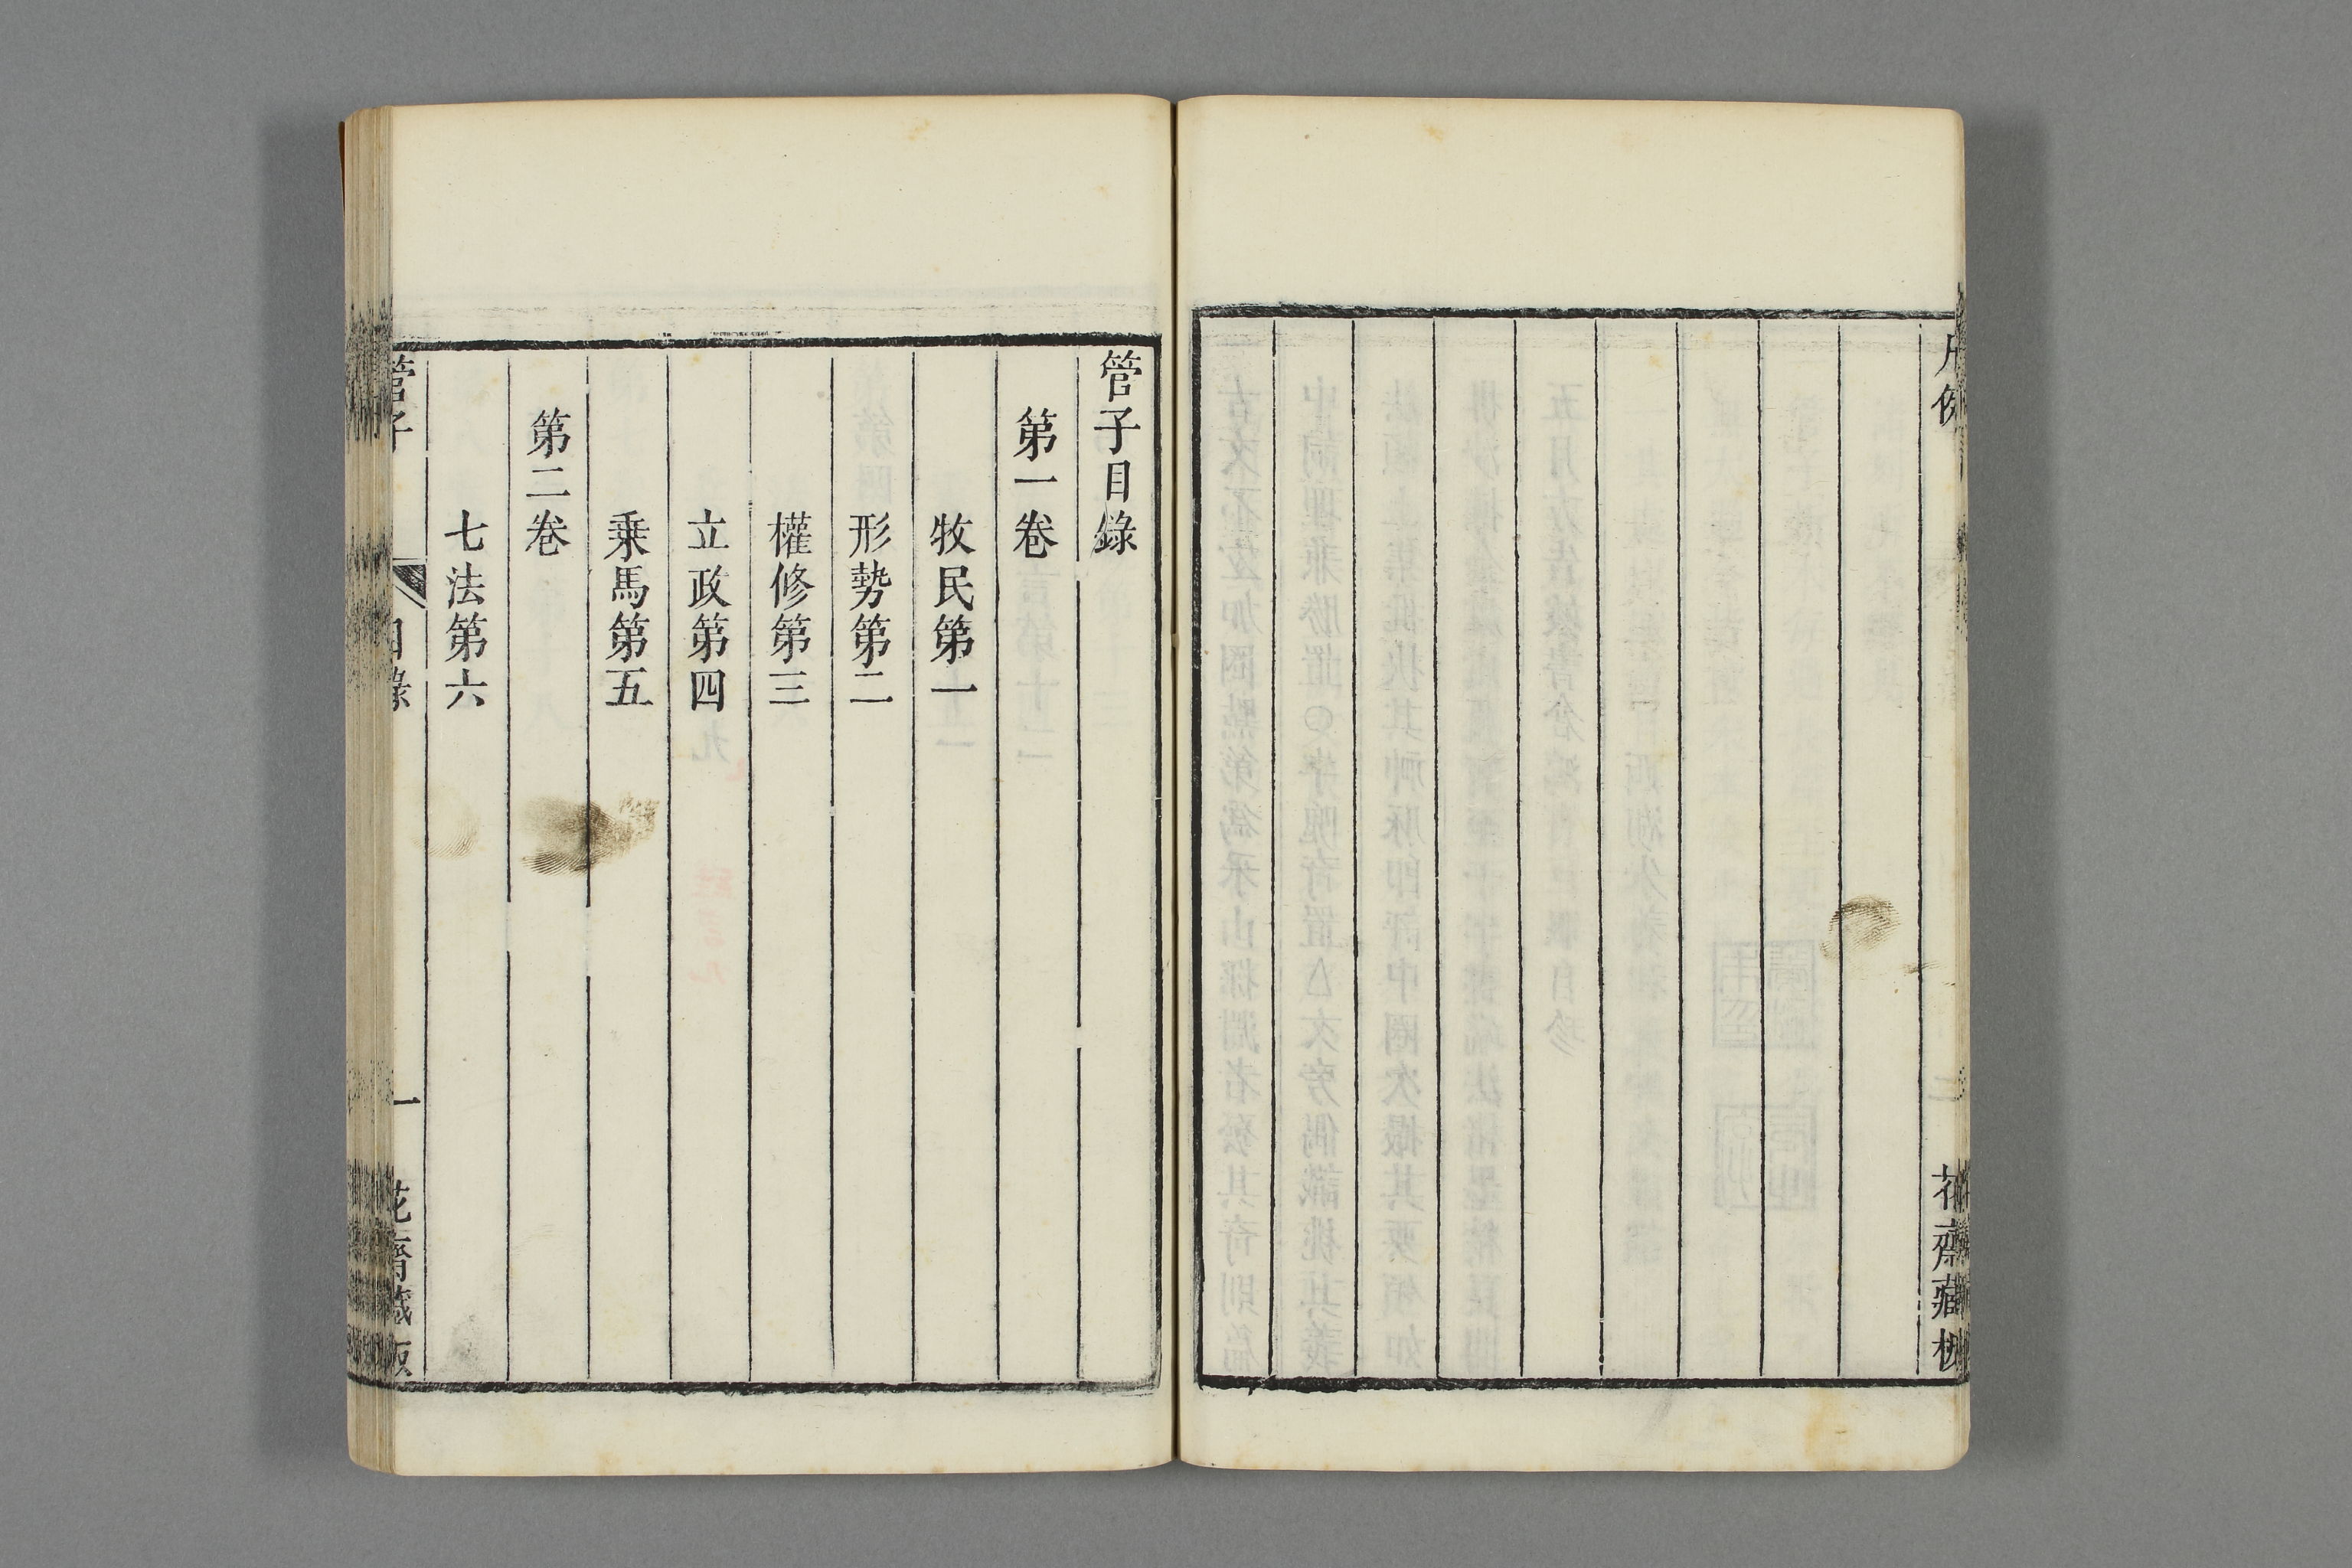 凡例
二
花齋藏板
管子目錄
第一卷
牧民第一
形勢第二
權修第三
立政第四
乗馬第五
第二卷
七法第六
管子
目錄
一
花齋藏板